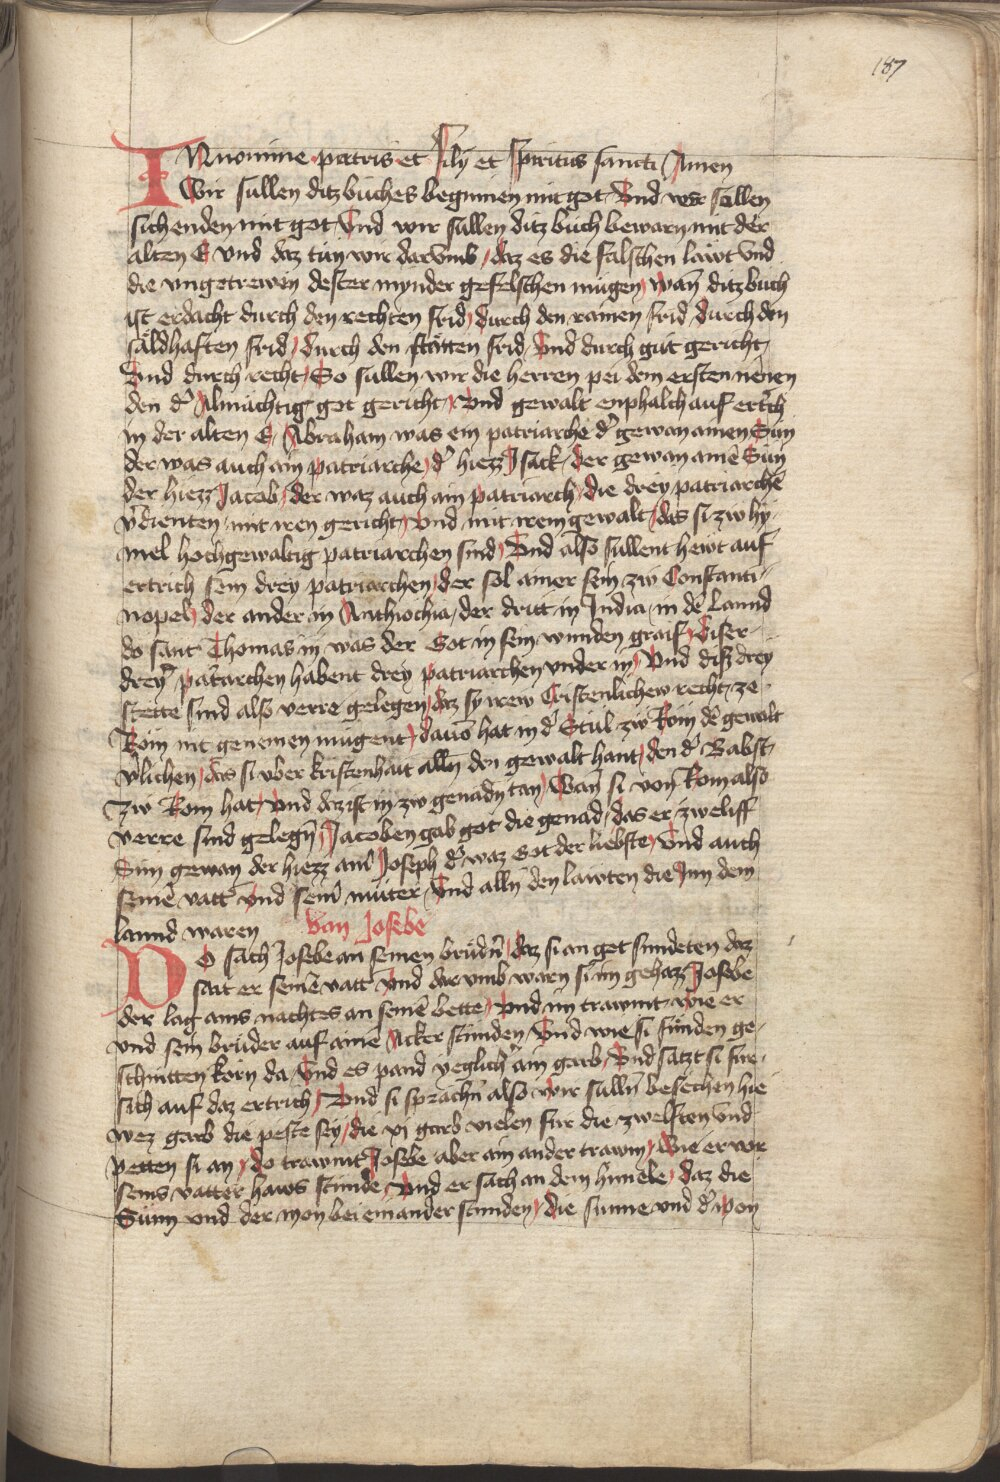 187
IN nomine patris et filij et Spiritus sancti Amen
Wir sullen ditz buches beginnen mit got Vnd wir sullen
sich enden mit got Vnd wir sullen ditz buch bewarn mit der
alten E vnd daz tun wir darvmb daz es die falschen läwt vnd
die vngetrewen dester mynder gefelschen mugen wan̄ ditz buch
ist erdacht durch den rechten frid durch den rainen frid durch den
säldhaften frid durch den stätten frid Vnd durch gut gericht
Vnd durch recht So sullen wir die herren pei dem ersten nēnen
den d͛ Almächtig got gericht Vnd gewalt enphalch auf ertrich
in der alten E Abraham was ein patriarche d͛ gewan ainen Sun
der was auch ain patriarche d͛ hiezz Isack der gewan ainē Sun
der hiezz Jacob der waz auch ain patriarch die drey patriarchē
v͛dienten mit iren gericht Vnd mit irem gewalt das si zw hy
mel hochgewaltig patriarchen sind Vnd also sullent hewt auf
ertrich sein drey patriarchen der sol ainer sein zw Constanti
nopel der ander in Anthiochia der dritt in India in de͛ Lannd
do sant Thomas in was der Got in sein wunden graif diser
drey͛ patr̄archen habent drey patriarchen vnder in Vnd disz drey
stette sind also verre gelegen daz sy irew Cristenlichew recht ze
Rom nit genemen mugent dauō hat in d͛ Stul zw Rom de͛ gewalt
v͛lichen das si vber kristenhait alln̄ den gewalt hant den d͛ Babst
zw Rom hat Vnd daz ist in zw genadn̄ tan Wan̄ si von Rom also
verre sind gelegn̄ Jacoben gab got die genad das er zweliff
Sun gewan der hiezz ain͛ Joseph d͛ waz Got der liebste Vnd auch
seinē vatt͛ Vnd sein͛ muter Vnd alln̄ den lawten die Inn dem
lannd waren Van Josebe
DO sach Josebe an seinen brüdn̄ daz si an got sundeten daz
sait er seinē vatt͛ Vnd dar vmb warn si im gehazz Josebe
der lag ains nachtes an seinē bette Vnd im trawmt wie er
vnd sein bruder auf aine Acker stunden Vnd wie si funden ge
schnitten korn da Vnd es pand yeglich͛ ain garb Vnd satzt si für
sich auf daz ertrich Vnd si sprachn̄ also wir sulln̄ besechen hie
wez garb die peste sey die xj garb vielen für die zwelften vnd
petten si an do trawmt Josebe aber ain ander trawm Wie er vor
seins vatter haws stunde Vnd er sach an dem himele daz die
Sunn vnd der mon bei einander stunden die sunne vnd d͛ mon